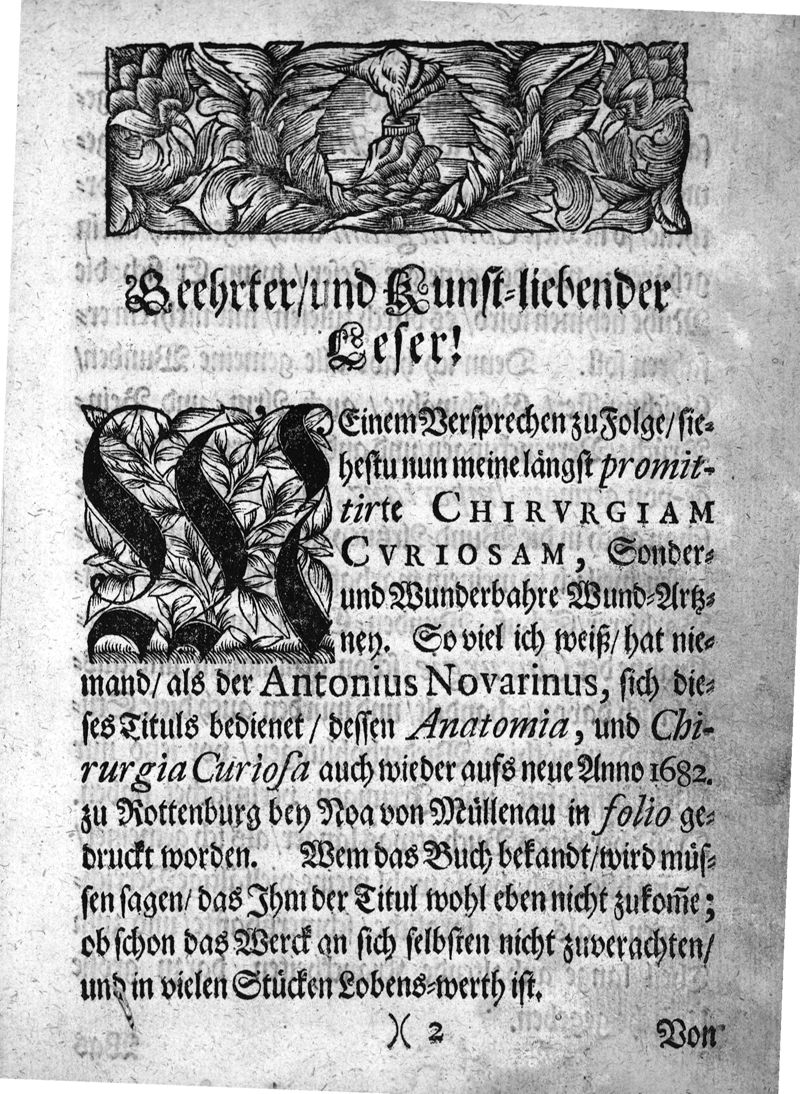 Geehrter/und Kunst-liebender
Leser!
MEinem Versprechen zu Folge/ sie-
hestu nun meine långst promit-
tirte CHIRVRGIAM
CVRIOSAM, Sonder-
und Wunderbahre Wund-Artz-
ney. So viel ich weiß/ hat nie-
mand/ als der Antonius Novarinus, sich die-
ses Tituls bedienet / dessen Anatomia, und Chi-
rurgia Curiosa auch wieder aufs neue Anno 1682.
zu Rottenburg bey Noa von Müllenau in folio ge-
druckt worden. Wem das Buch bekandt/wird müs-
sen sagen/ das Ihm der Titul wohl eben nicht zukom̃e;
ob schon das Werck an sich selbsten nicht zuverachten/
und in vielen Stücken Lobens-werth ist.
)( 2 Von